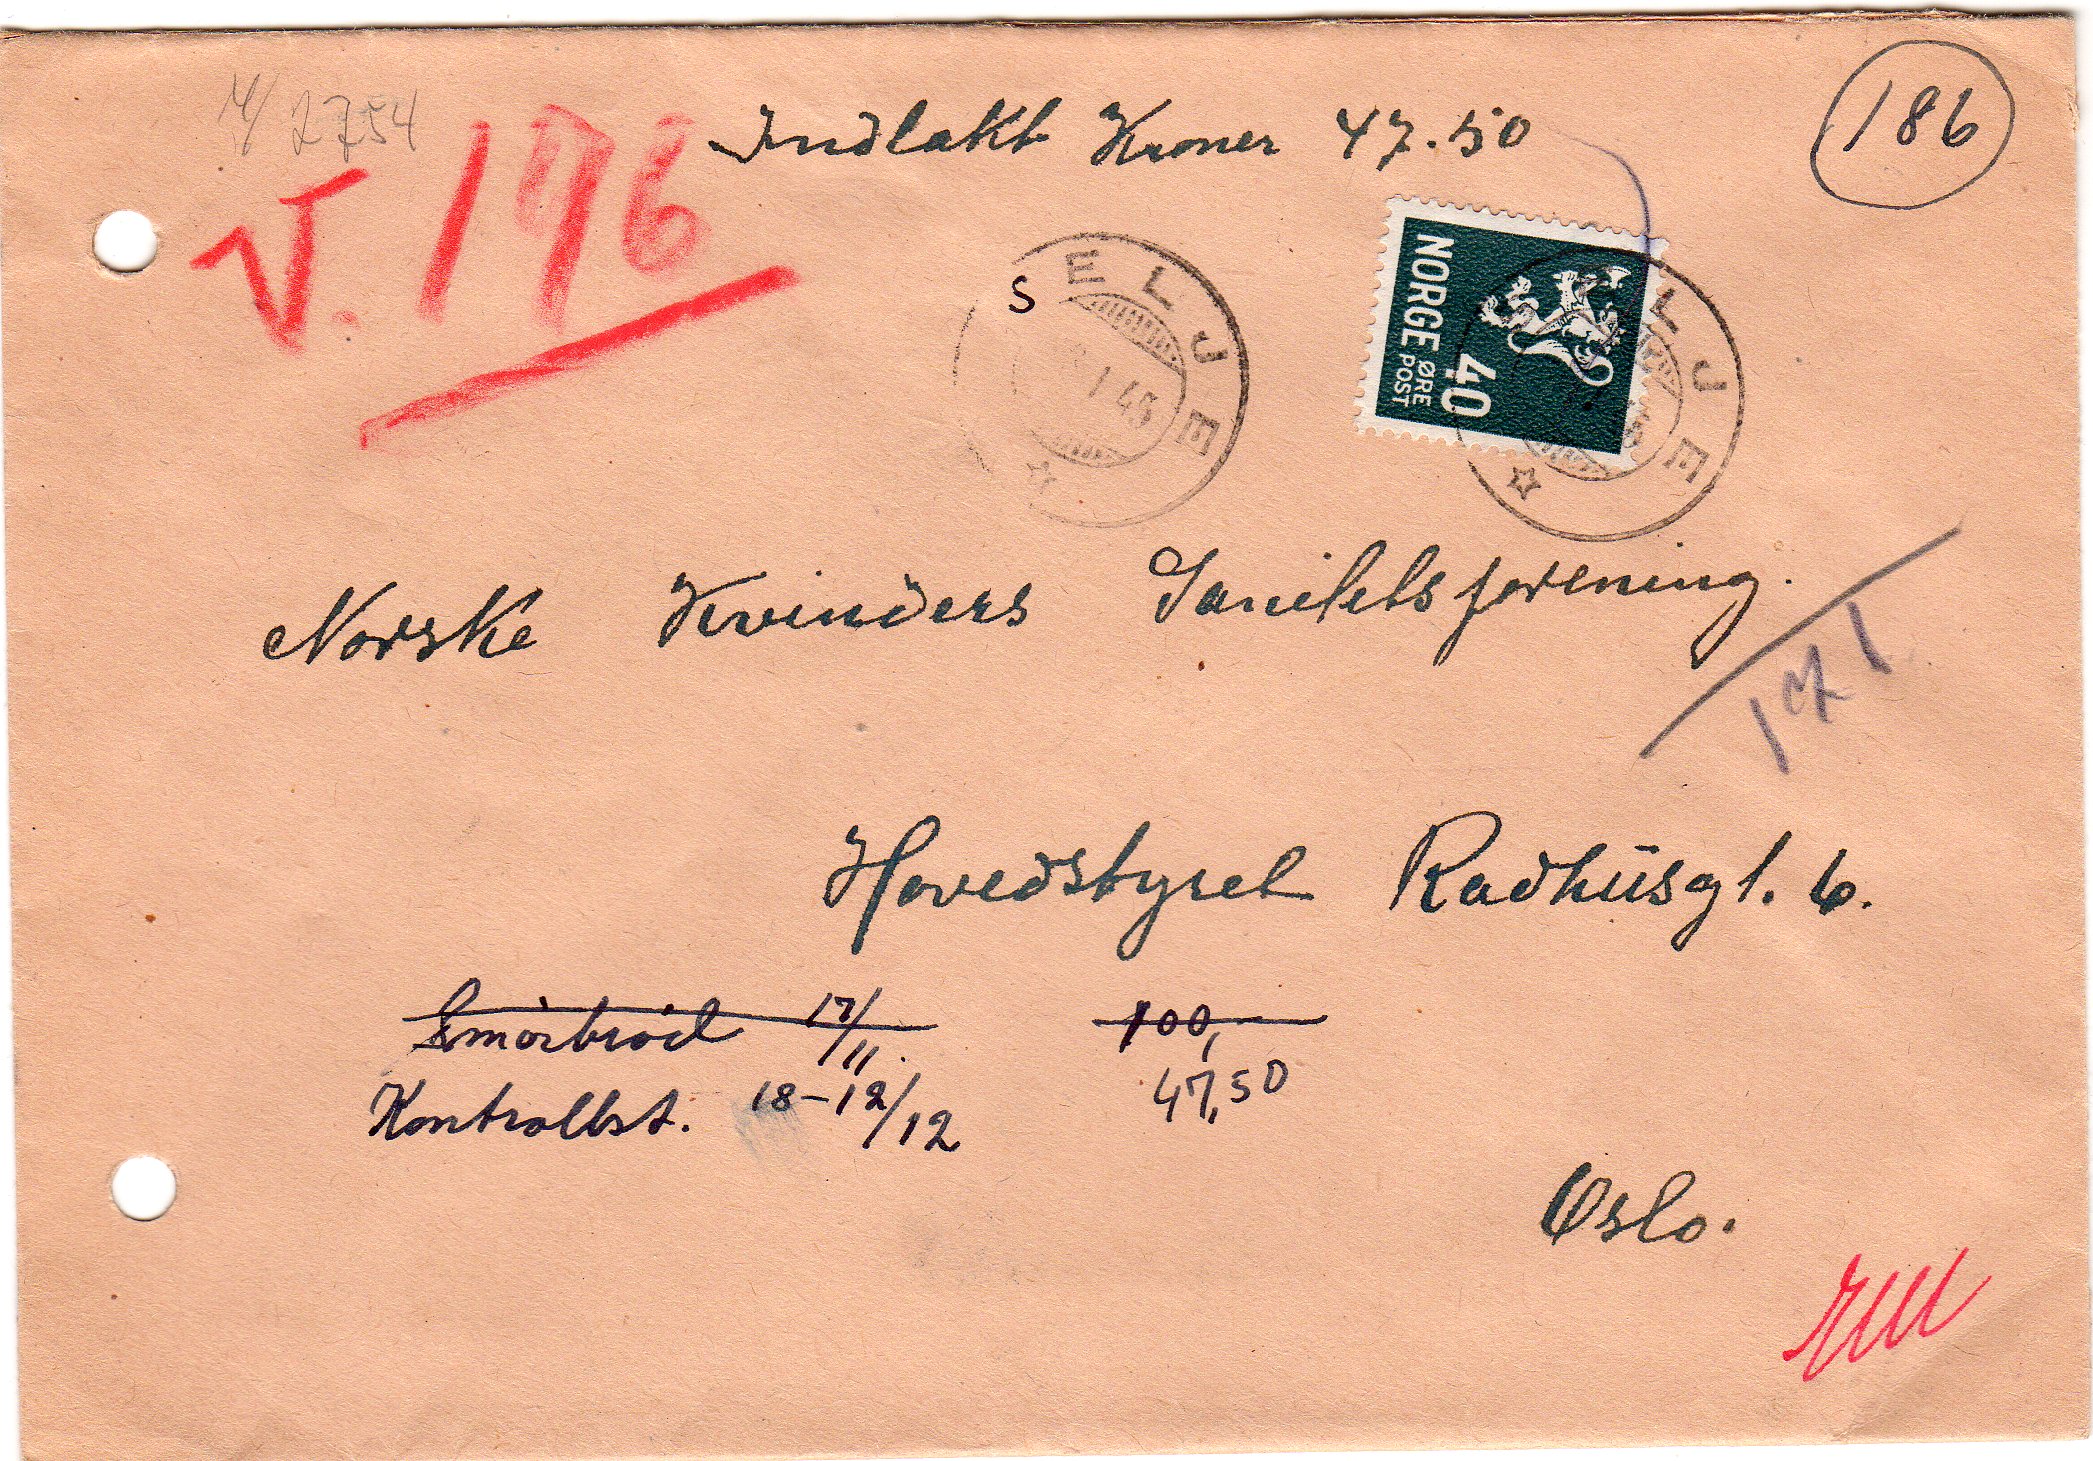 2754
V. 176
Indlakt Kroner 47.50
186
S E L J E
1 45
NORGE
POST
ØRE
40
L J E
Norske Kvinders Sanitetsforening.
171
Hovedstyret Radhusgt. 6.
Smörbröd 17/11. 100,
Kontrollst. 18-12/12 47,50
Oslo.